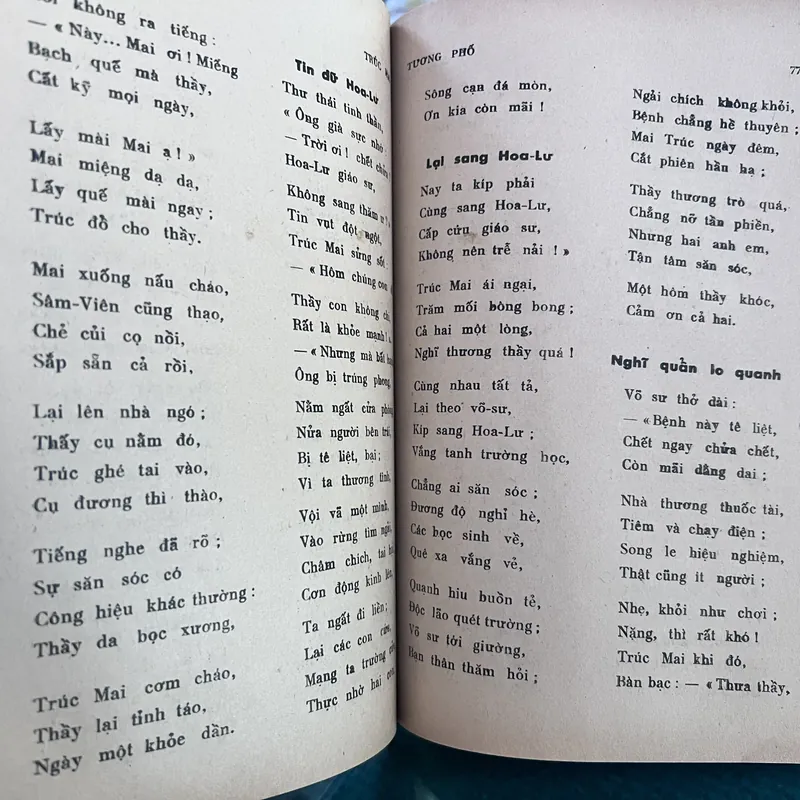 không ra tiếng :
— « Này... Mai ơi ! Miếng
Bạch quế mà thầy,
Cất kỹ mọi ngày,
Lấy mài Mai ạ ! »
Mai miệng dạ dạ,
Lấy quế mài ngay ;
Trúc đồ cho thầy.
Mai xuống nấu cháo,
Sâm-Viên cũng thạo,
Chẻ củi cọ nồi,
Sắp sẵn cả rồi,
Lại lên nhà ngó ;
Thấy cu nằm đó,
Trúc ghé tai vào,
Cụ đương thì thào,
Tiếng nghe đã rõ ;
Sự săn sóc có
Công hiệu khác thường :
Thầy da bọc xương,
Trúc Mai cơm cháo,
Thầy lại tỉnh táo,
Ngày một khỏe dần.
TRÚC
Tin dữ Hoa-Lư
Thư thái tinh thần,
« Ông già sức nhỏ
— Trời ơi ! chết
Hoa-Lư giáo sư,
Không sang thăm ư ?
Tin vụt đột ngột,
Trúc Mai sửng sốt
— « Hôm chúng con
Thầy con không
Rất là khỏe mạnh !
— « Nhưng mà bất
Ông bị trúng phong,
Nằm ngất cửa
Nửa người bên
Bị tê liệt, bại ;
Vì ta thương tình,
Vội vã một mình,
Vào rừng tìm
Châm chích, tai
Cơn động kinh lên,
Ta ngất đi liền ;
Lại các con
Mạng ta trường
Thực nhờ hai con
TƯƠNG PHỐ
77
Sông cạn đá mòn,
Ơn kia còn mãi !
Lại sang Hoa-Lư
Nay ta kíp phải
Cùng sang Hoa-Lư,
Cấp cứu giáo sư,
Không nên trễ nải ! »
Trúc Mai ái ngại,
Trăm mối bòng bong ;
Cả hai một lòng,
Nghĩ thương thầy quá !
Cùng nhau tất tả,
Lại theo võ-sư,
Kíp sang Hoa-Lư ;
Vắng tanh trường học,
Chẳng ai săn sóc ;
Đương độ nghỉ hè,
Các bọc sinh về,
Quê xa vắng vẻ,
Quạnh hiu buồn tẻ,
Độc lão quét trường ;
Võ sư tới giường,
Bạn thân thăm hỏi ;
Ngải chích không khỏi,
Bệnh chẳng hề thuyên ;
Mai Trúc ngày đêm,
Cắt phiên hầu hạ ;
Thầy thương trò quá,
Chẳng nỡ tần phiền,
Nhưng hai anh em,
Tận tâm săn sóc,
Một hôm thầy khóc,
Cảm ơn cả hai.
Nghĩ quần lo quanh
Võ sư thở dài :
— « Bệnh này tê liệt,
Chết ngay chửa chết,
Còn mãi dằng dai ;
Nhà thương thuốc tài,
Tiêm và chạy điện ;
Song le hiệu nghiệm,
Thật cũng ít người ;
Nhẹ, khỏi như chơi ;
Nặng, thì rất khó !
Trúc Mai khi đó,
Bàn bạc : — « Thưa thầy,